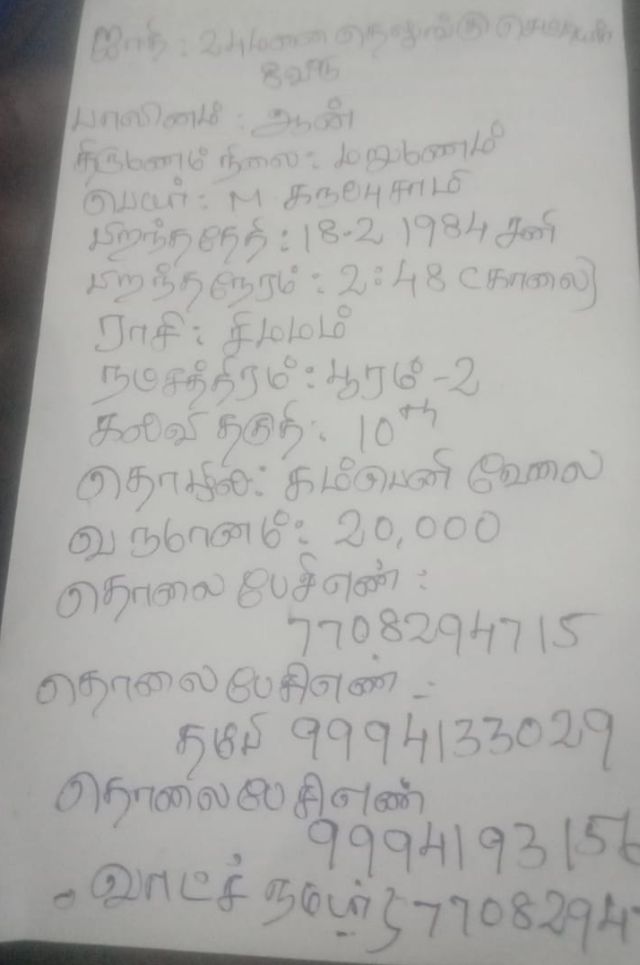 ஜாதி : 24 மனை தெலுங்கு செட்டியார்
பாலினம் : ஆண்
திருமணம் நிலை : மறுமணம்
பெயர் : M கருப்புசாமி
பிறந்ததேதி : 18-2 1984 சனி
பிறந்தநேரம் : 2:48 (காலை)
ராசி : சிம்மம்
நட்சத்திரம் : பூரம் -2
கல்வி தகுதி : 10th
தொழில் : கம்பெனி வேலை
வருமானம் : 20,000
தொலைபேசி எண் :
7708294715
தொலைபேசி எண் :-
தம்பி 9994133029
தொலைபேசி எண்
9994193156
வாட்ச் நம்பர் 7708294